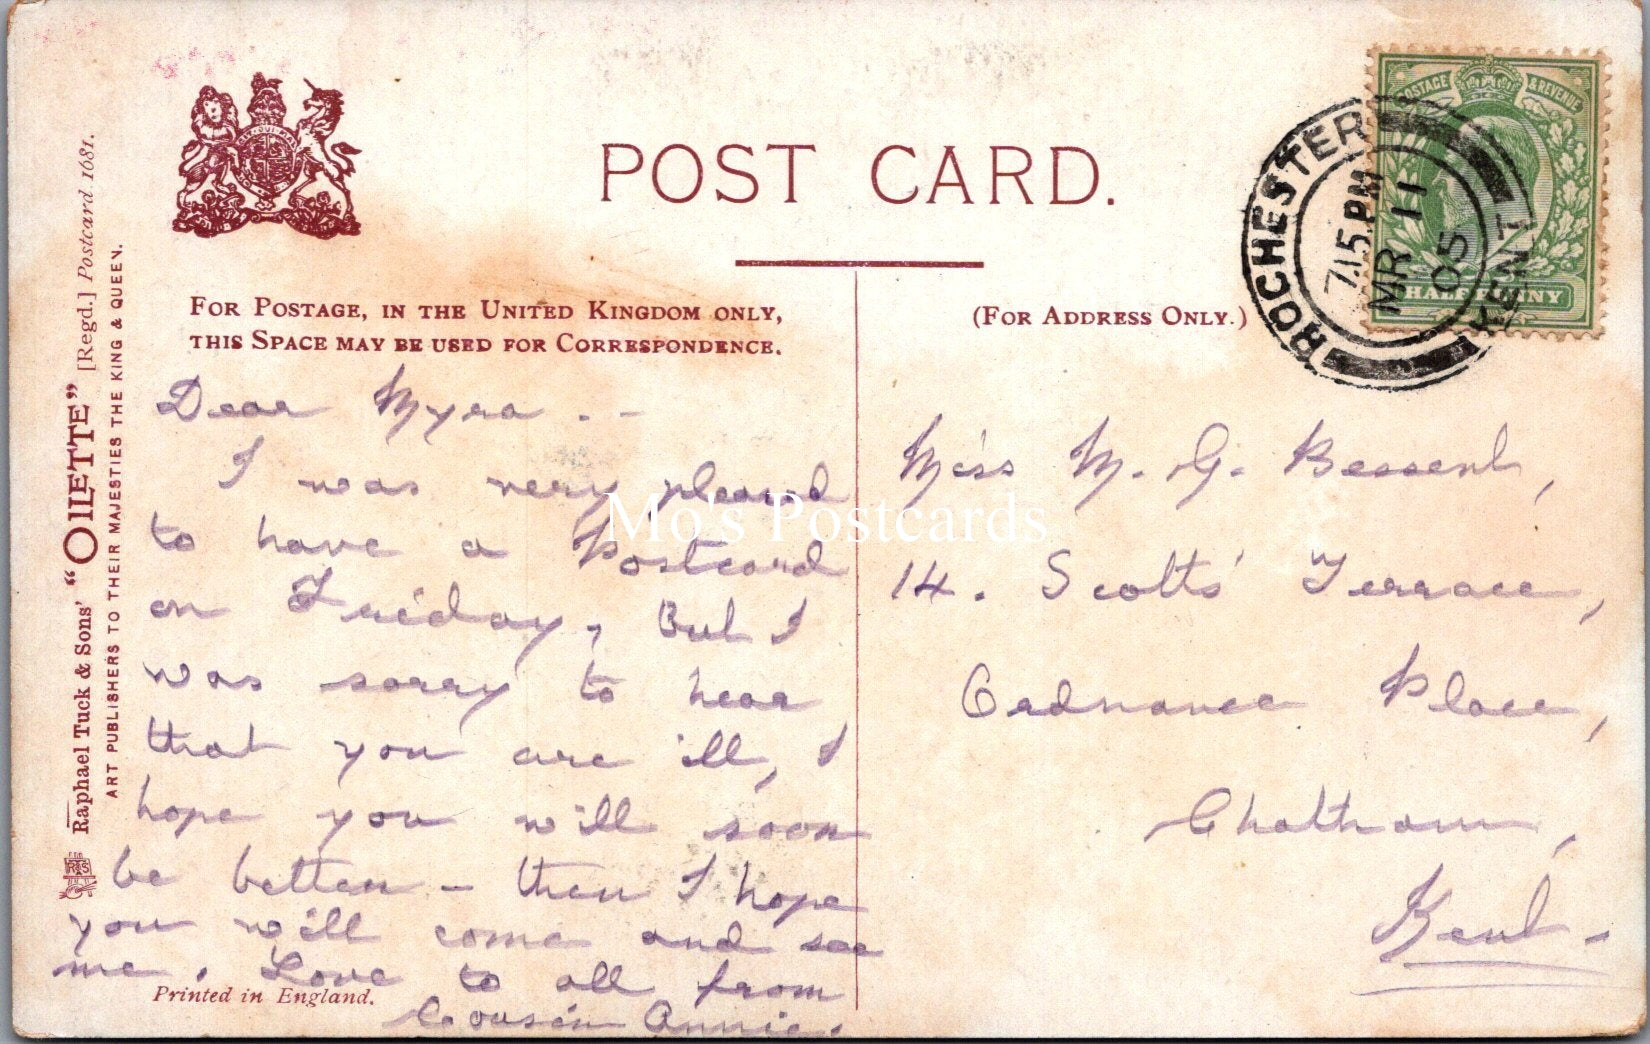 POST CARD.
FOR POSTAGE, IN THE UNITED KINGDOM ONLY,
THIS SPACE MAY BE USED FOR CORRESPONDENCE.
(FOR ADDRESS ONLY.)
Raphael Tuck & Sons' "OILETTE" [Regd.] Postcard 1681.
ART PUBLISHERS TO THEIR MAJESTIES THE KING & QUEEN.
Dear Myra . -
I was very pleased
to have a Postcard
on Friday, But I
was sorry to hear
that you are ill, I
hope you will soon
be better - then I hope
you will come and see
me. Love to all from
Cousin Annie.
Printed in England.
Miss M. G. Bessent,
14. Scotts' Terrace,
Ordnance Place,
Chatham,
Kent-
POSTAGE & REVENUE
HALFPENNY
ROCHESTER
7.15 PM
MR 11
05
KENT
Mo's Postcards